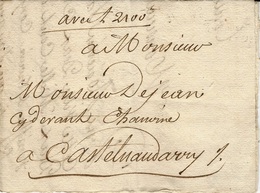 avec # 2100ᵗᵗ
a Monsieur
Monsieur Dejean
cyderant Chanoine
a Castelnaudarry /.